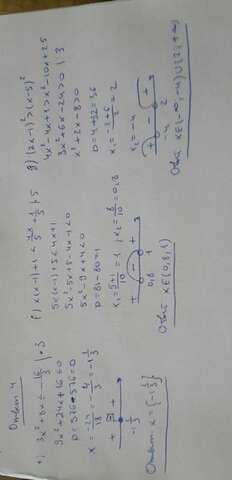 Ответ 4
3x² + 8x ≤ -16/3 | *3
9x² + 24x + 16 ≤ 0
D = 576 - 576 = 0
x = -24/18 = -4/3 = -1 1/3
+ +
-1 1/3
Ответ: x = {-1 1/3}
f) x(x-1)+1 < 4x/5 + 1/5 | 5
5x² - 5x + 5 - 4x - 1 < 0
5x² - 9x + 4 < 0
D = 81 - 80 = 1
x₁ = 9+1/10 = 1, x₂ = 8/10 = 0,8
+ - +
0,8 1
Ответ x∈(0,8;1)
g) (2x-1)² > (x-5)²
4x² - 4x + 1 > x² - 10x + 25
3x² + 6x - 24 > 0 | 3
x² + 2x - 8 > 0
D = 4 + 32 = 36
x₁ = -2+6/2 = 2
x₂ = -4
+ - +
-4 2
Ответ x∈(-∞,-4)∪(2,+∞)